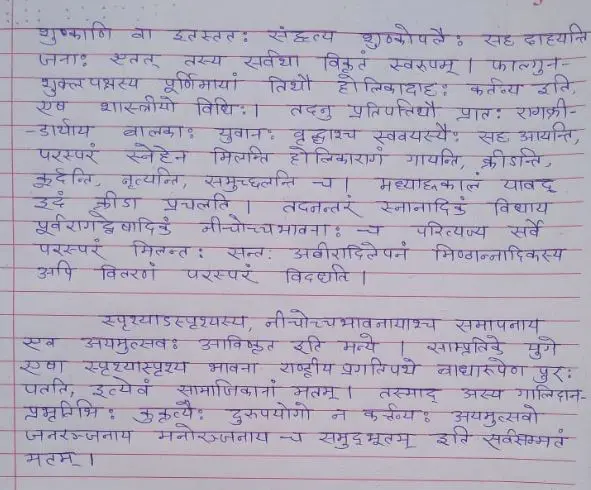 शुष्काणि वा इतस्ततः संहृत्य शुष्कोपलैः सह दाहयन्ति
जनाः एतत् तस्य सर्वथा विकृतं स्वरूपम् । फाल्गुन-
शुक्लपक्षस्य पूर्णिमायां तिथौ होलिकादाहः कर्तव्य इति,
एष शास्त्रीयो विधिः । तदनु प्रतिपत्तिथौ प्रातः रागक्री-
-डार्थाय बालकाः युवानः वृद्धाश्च स्ववयस्यैः सह आयन्ति,
परस्परं स्नेहेन मिलन्ति होलिकारागं गायन्ति, क्रीडन्ति,
कूर्दन्ति, नृत्यन्ति, समुच्छलन्ति च । मध्याह्नकालं यावद्
इदं क्रीडा प्रचलति । तदनन्तरं स्नानादिकं विधाय
पूर्वरागद्वेषादिकं नीचोच्चभावनाः च परित्यज्य सर्वे
परस्परं मिलन्तः सन्तः अबीरादिलेपनं मिष्ठान्नादिकस्य
अपि वितरणं परस्परं विदधति ।
स्पृश्याऽस्पृश्यस्य, नीचोच्चभावनायाश्च समापनाय
एव अयमुत्सवः आविष्कृत इति मन्ये । साम्प्रतिके युगे
एषा स्पृश्यास्पृश्य भावना राष्ट्रीयप्रगतिपथे बाधारूपेण पुरः
पतति, इत्येवं सामाजिकानां मतम् । तस्माद् अस्य गालिदान-
प्रभृतिभिः कुकृत्यैः दुरुपयोगो न कर्त्तव्यः अयमुत्सवो
जनरञ्जनाय मनोरञ्जनाय च समुद्भूतम् इति सर्वसम्मतं
मतम् ।